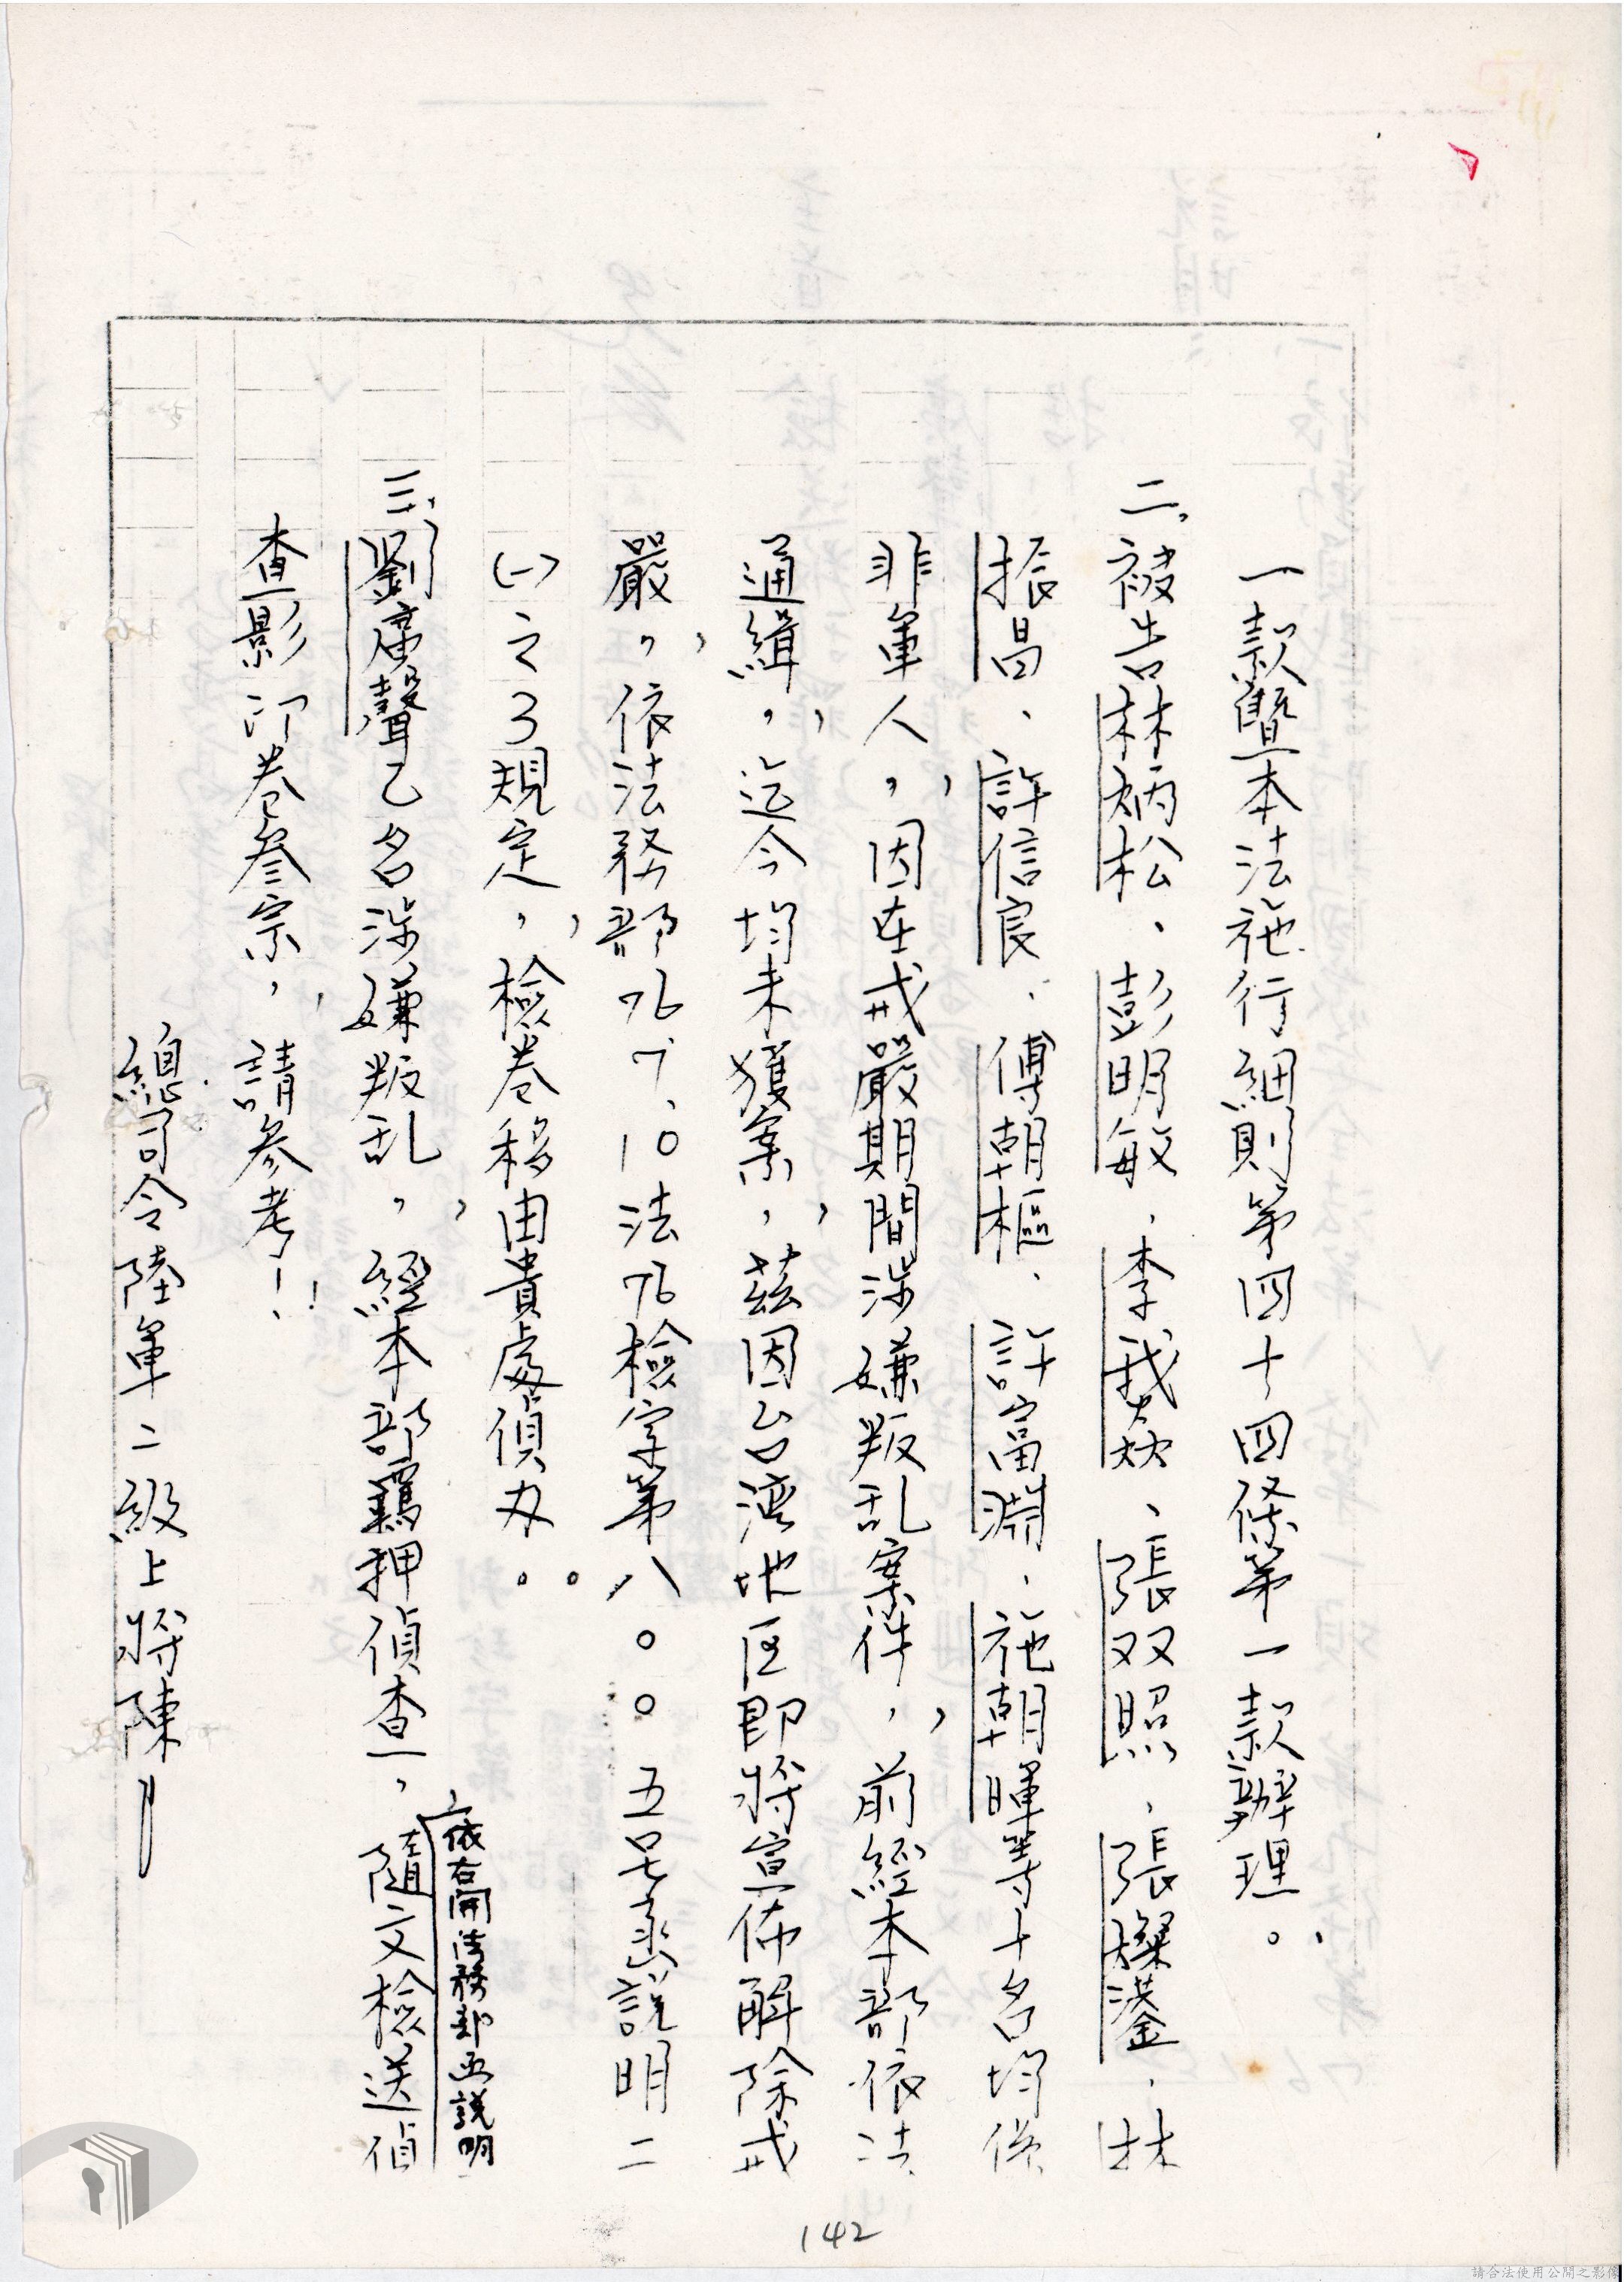 一款暨本法施行細則第四十四條第一款辦理。
二、被告林炳松、彭明敏、李我焱、張双照、張燦鍙、林
振昌、許信良、傅朝樞、許富淵、施朝暉等十名均係
非軍人，因在戒嚴期間涉嫌叛乱案件，前經本部依法
通緝，迄今均未獲案，茲因台湾地区即將宣佈解除戒
嚴，依法務部76、7、10法76檢字第八〇〇五号函說明二
(一)之3規定，檢卷移由貴處偵办。
三、劉廣聲乙名涉嫌叛乱，經本部羈押偵查，隨文檢送偵
依右開法務部函說明
查影印卷叁宗，請參考！
總司令陸軍二級上將陳
142
請合法使用公開之影像